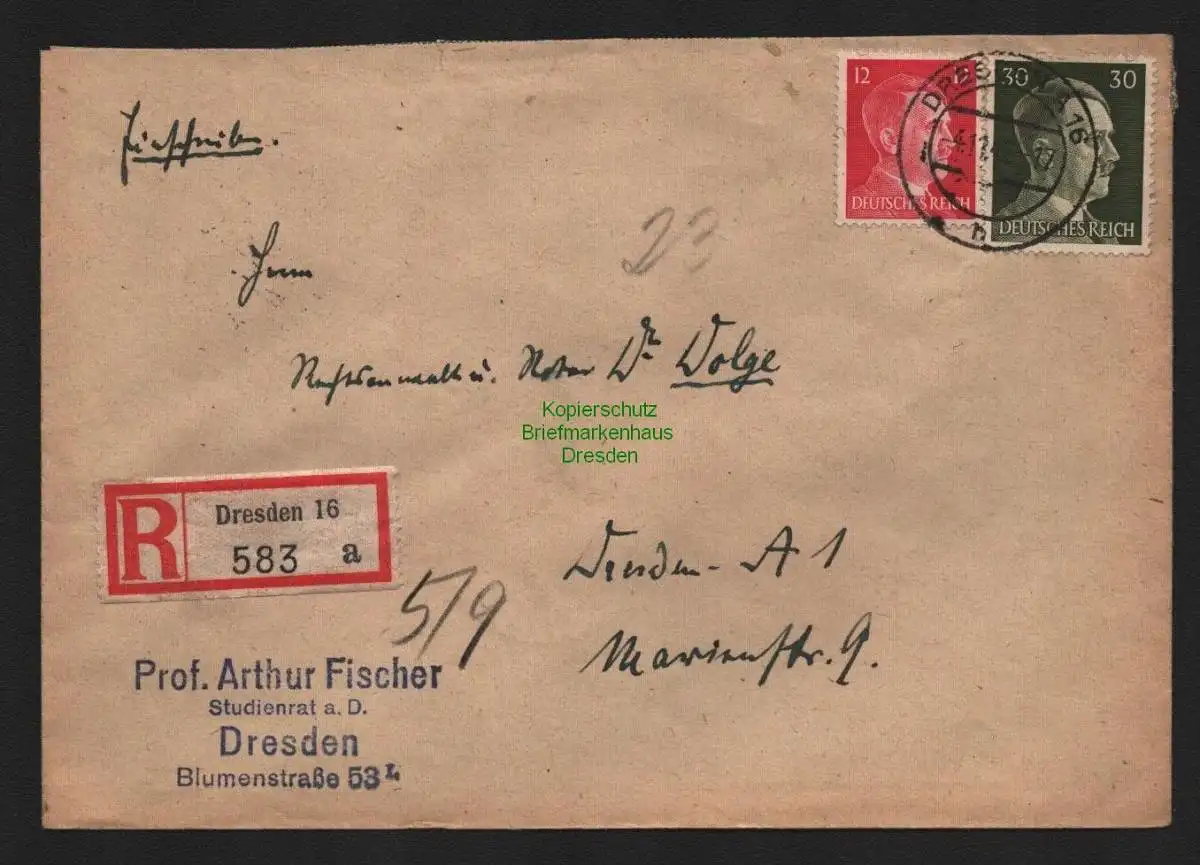 12 12
DEUTSCHES REICH
30 30
DEUTSCHES REICH
16
h
Einschreiben.
23
Herrn
Rechtsanwalt u. Notar Dr. Dolge
Kopierschutz
Briefmarkenhaus
Dresden
R Dresden 16
583 a
Dresden-A 1
5/9
Marienstr. 9.
Prof. Arthur Fischer
Studienrat a. D.
Dresden
Blumenstraße 53